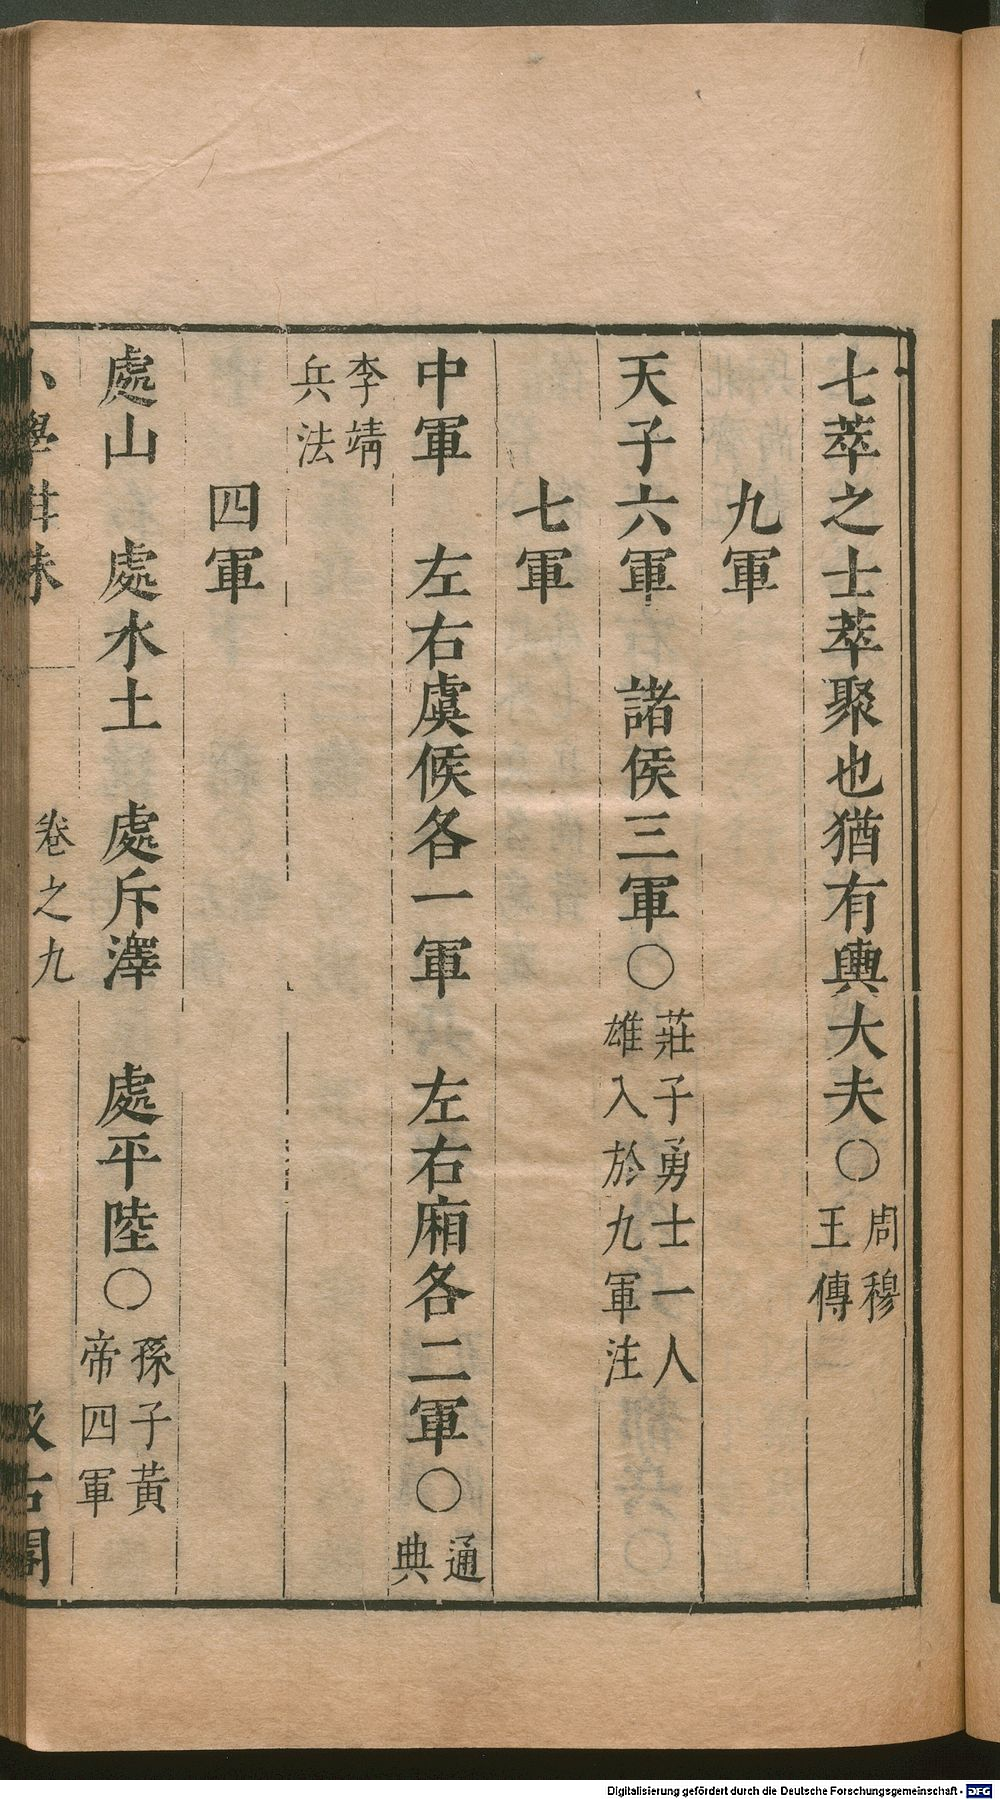 七萃之士萃聚也猶有輿大夫○周穆王傳
九軍
天子六軍　諸侯三軍○莊子勇士一人雄入於九軍注
七軍
中軍　左右虞候各一軍　左右廂各二軍○通典
李靖兵法
四軍
處山　處水土　處斥澤　處平陸○孫子黃帝四軍
小學紺珠　卷之九　汲古閣
Digitalisierung gefördert durch die Deutsche Forschungsgemeinschaft - DFG